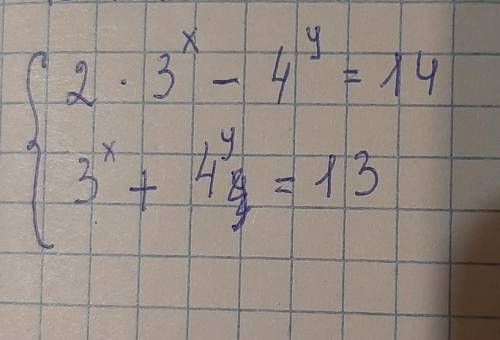 2 · 3^x - 4^y = 14
3^x + 4^y = 13